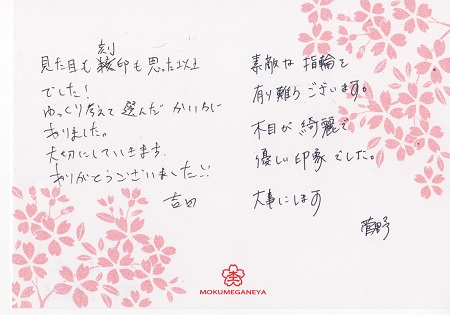 見た目も刻印も思った以上
でした!
ゆっくり考えて選んだかいが
ありました。
大切にしていきます。
ありがとうございました!!
吉田
素敵な指輪を
有り難うございます。
木目が綺麗で
優しい印象でした。
大事にします
菅野
MOKUMEGANEYA